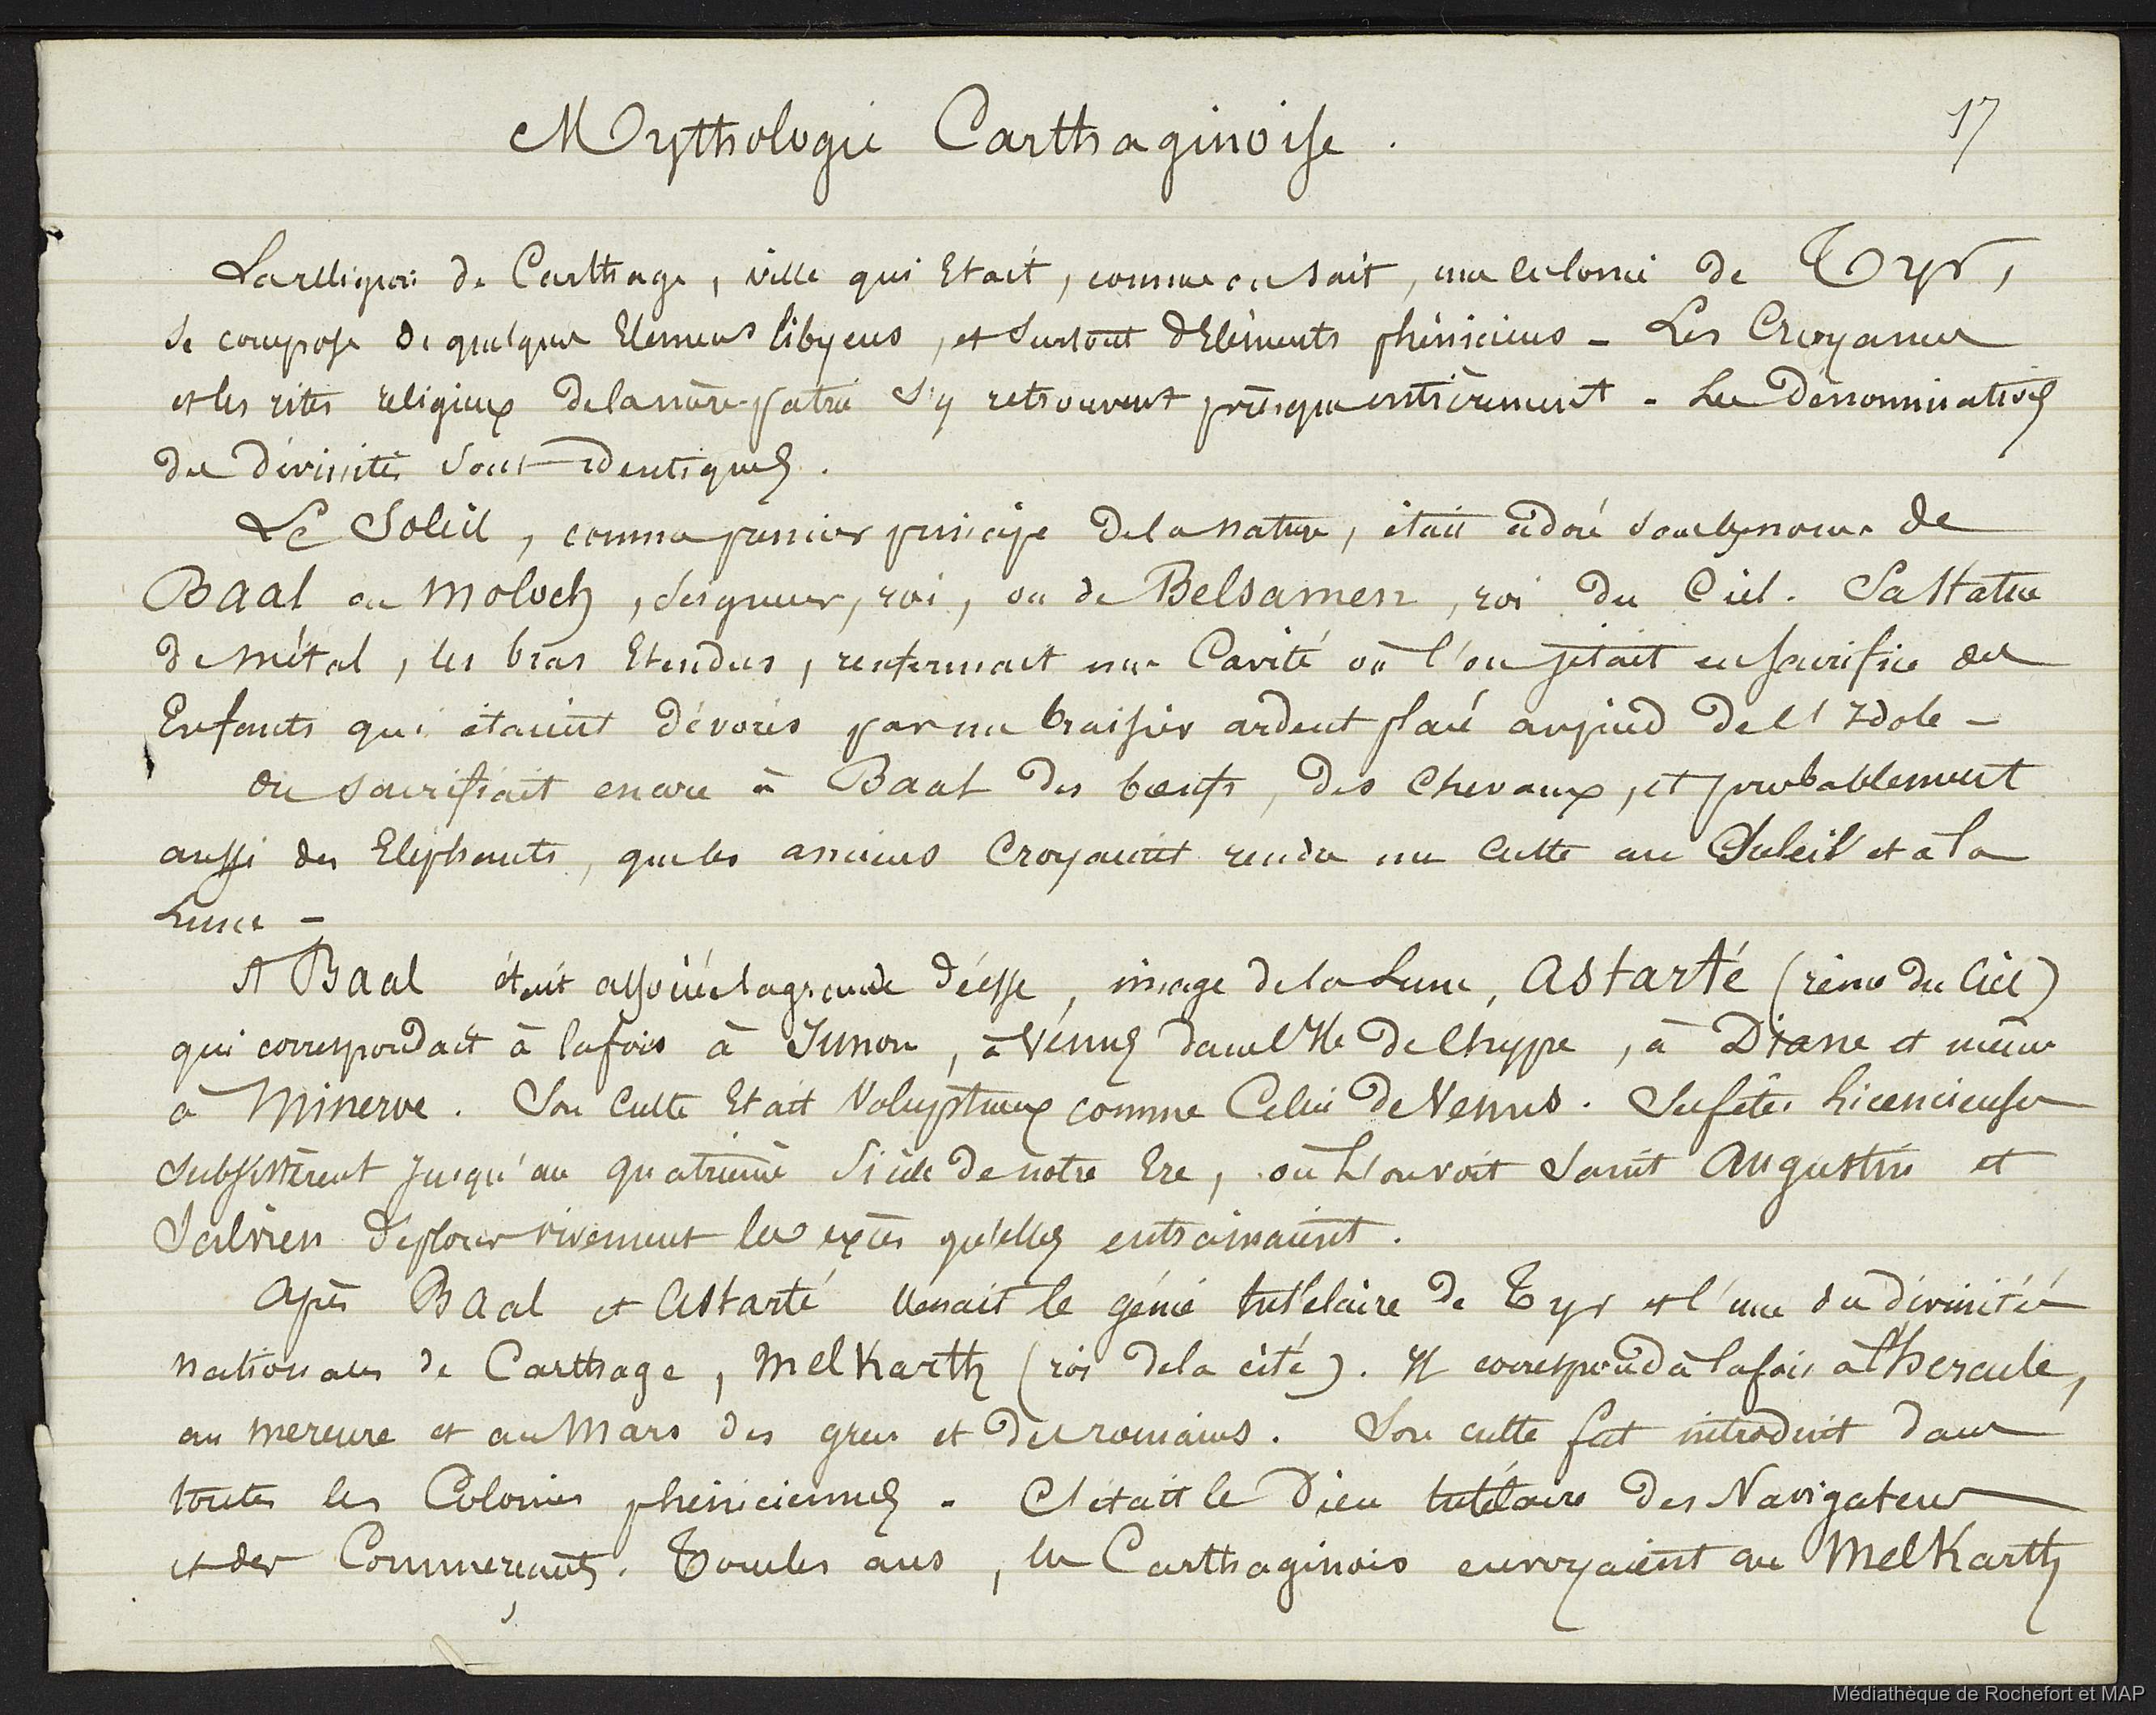 Mythologie Carthaginoise.
17
La religion de Carthage, ville qui Etait, comme on sait, une colonie de Tyr,
se compose de quelques Elemens libyens, et surtout d'Eléments phéniciens - Les Croyances
et les rites religieux de la mère-patrie s'y retrouvent presque entièrement - Les Dénominations
des Divinités sont identiques.
Le Soleil, comme premier principe de la nature, était adoré sous le nom de
Baal ou Moloch, seigneur, roi, ou de Belsamen, roi du Ciel. Sa Statue
de métal, les bras Etendus, renfermait une Cavité où l'on jetait en sacrifice des
Enfants qui étaient dévorés par un braisier ardent placé au pied de l'Idole -
On sacrifiait encore à Baal des bœufs, des chevaux, et probablement
aussi des Eléphants, que les anciens Croyaient rendre un Culte au Soleil et à la
Lune -
A Baal était associée la grande déesse, image de la Lune, Astarté (reine du Ciel)
qui correspondait à la fois à Junon, à Vénus dans l'Ile de Chypre, à Diane et même
à Minerve. Son Culte Etait Voluptueux comme Celui de Venus. Ses fêtes Licencieuses
subsistèrent jusqu'au quatrième Siècle de notre Ere, où L'on voit Saint Augustin et
Salvien déplorer vivement les excès qu'elles entrainaient.
Après Baal et Astarté venait le génie tutélaire de Tyr et l'une des divinités
nationales de Carthage, Melkarth (roi de la cité). Il correspond à la fois à l'hercule,
au mercure et au Mars des grecs et des romains. Son culte fut introduit dans
toutes les Colonies phéniciennes - C'était le Dieu tutélaire des Navigateurs
et des Commerçants. Tous les ans, les Carthaginois envoyaient au Melkarth
Médiathèque de Rochefort et MAP